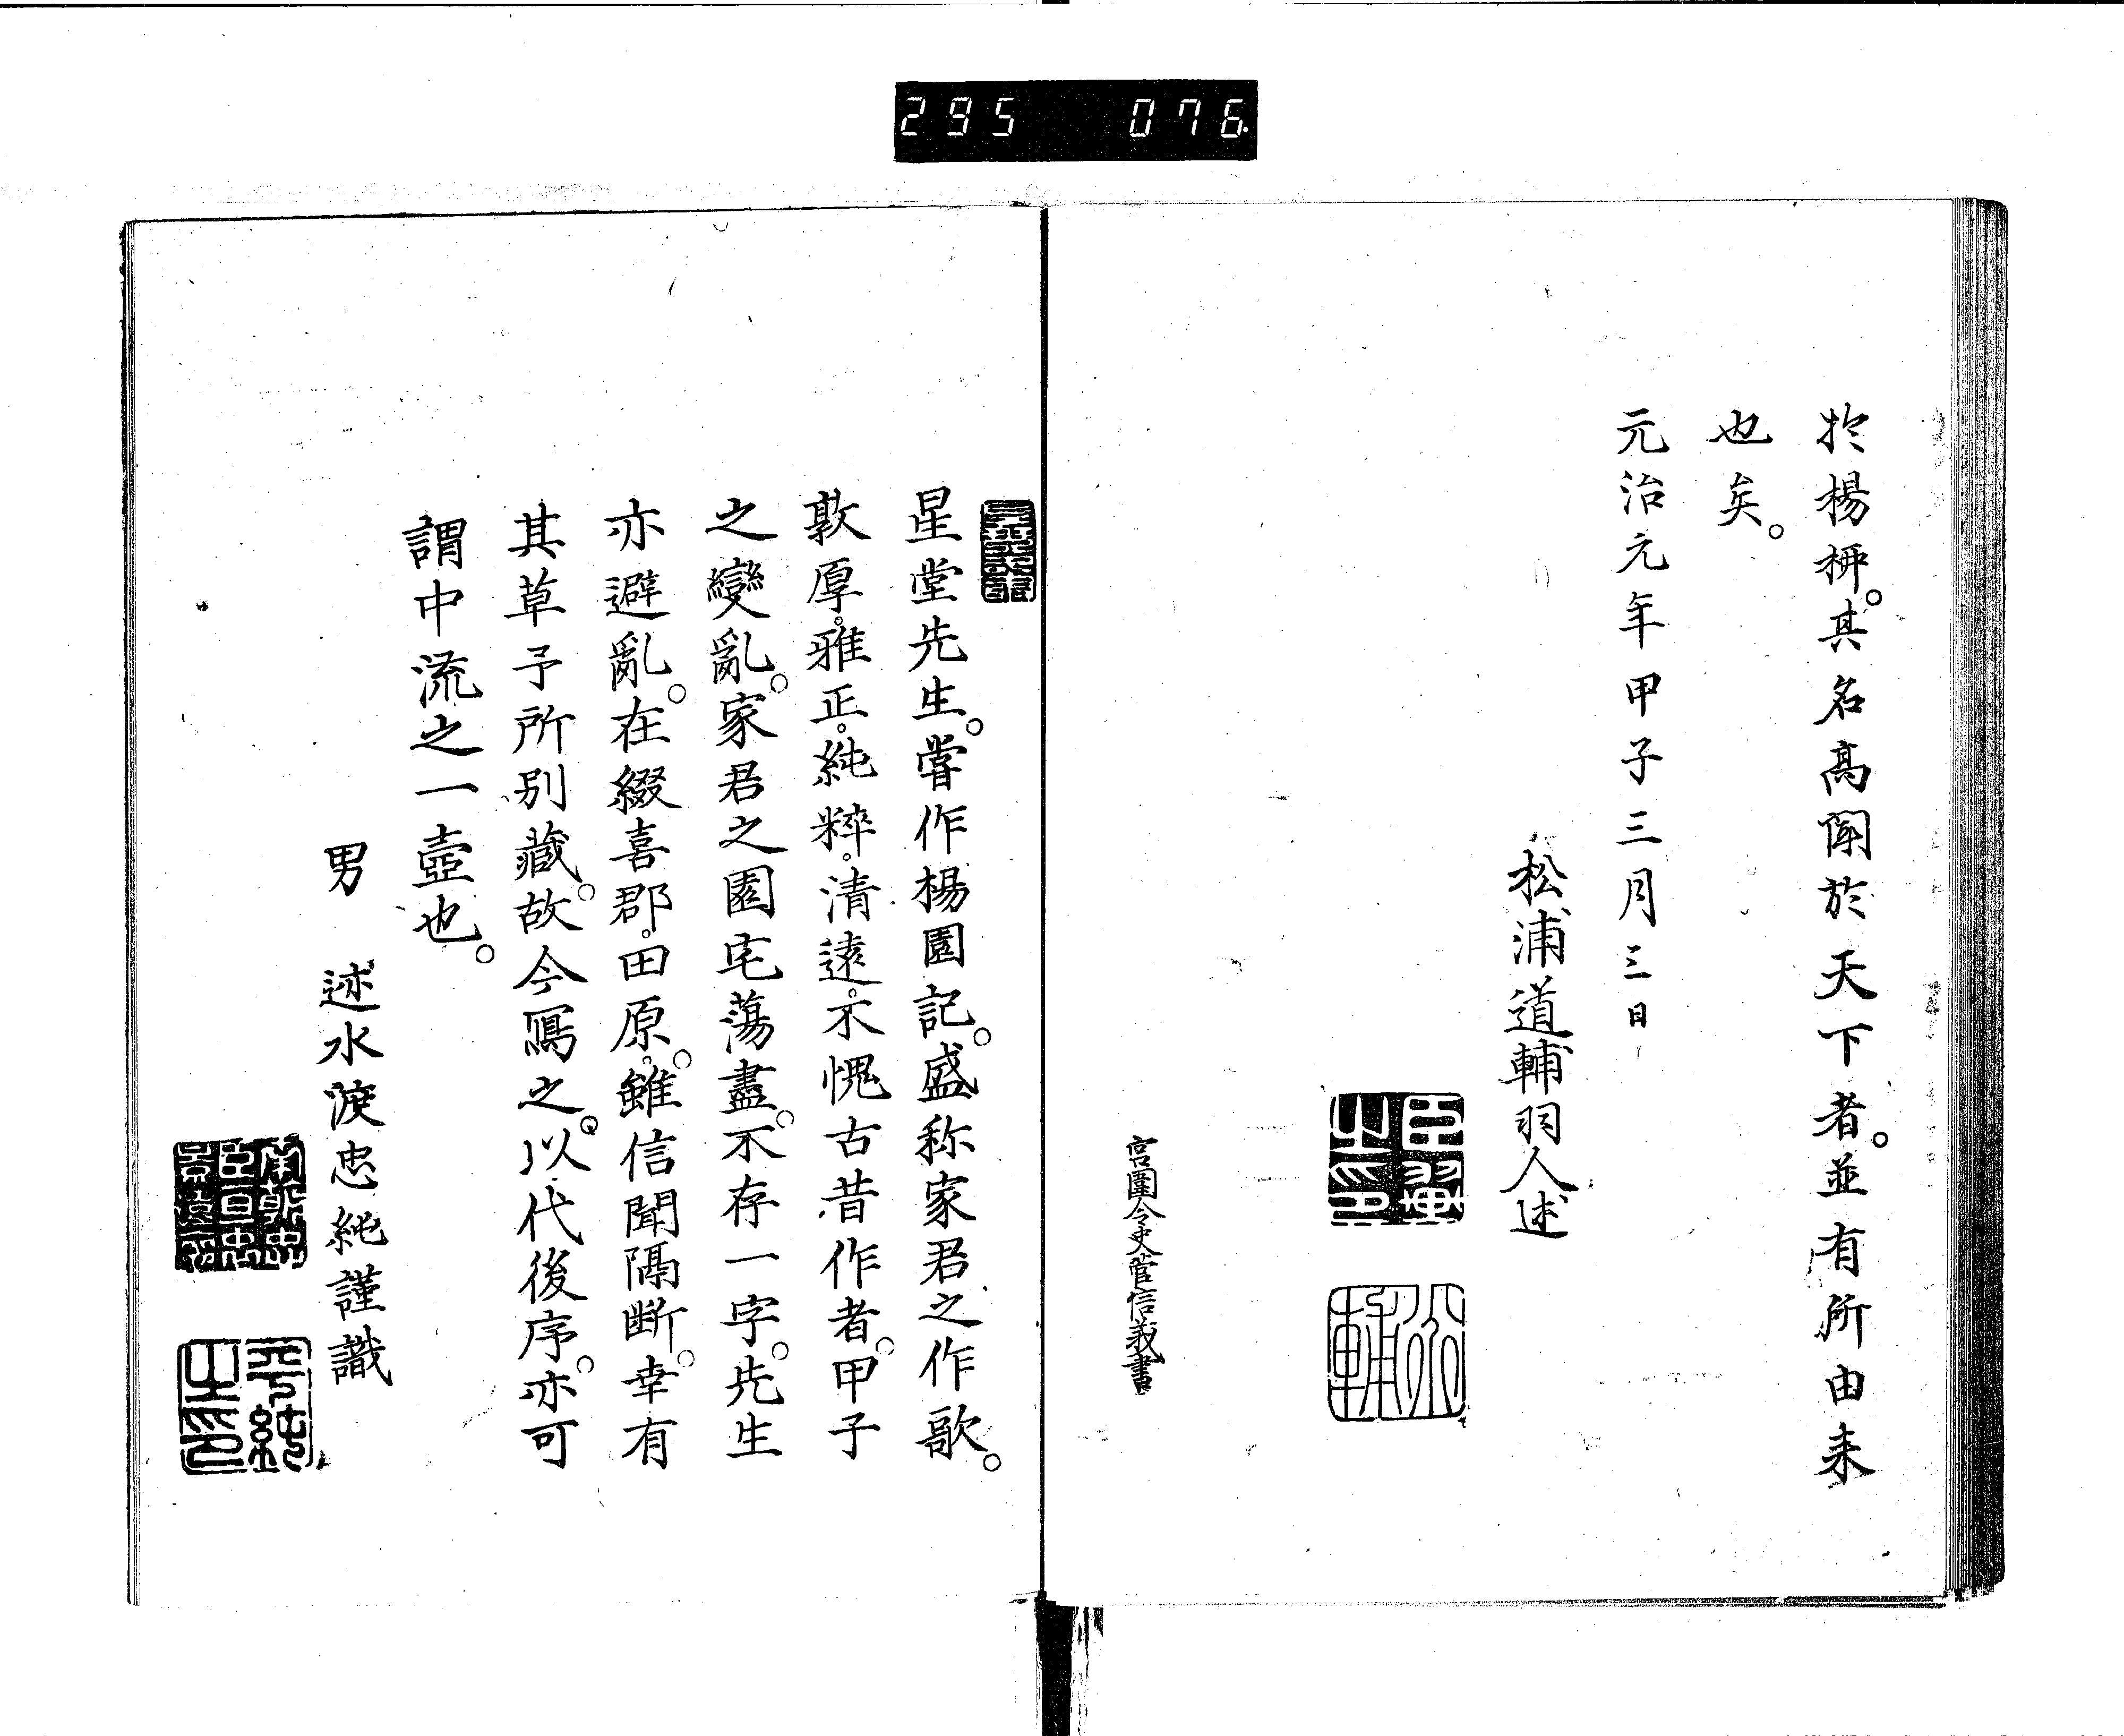 295 076.
於楊栟。其名高聞於天下者。並有所由来
也矣。
元治元年甲子三月三日
松浦道輔羽人述
宮圍令史菅信義書
星堂先生。嘗作楊園記。盛称家君之作歌。
敦厚。雅正。純粹。清遠。不愧古昔作者。甲子
之變亂。家君之園宅蕩盡。不存一字。先生
亦避亂。在綴喜郡。田原。雖信聞隔断。幸有
其草予所別藏。故今寫之。以代後序。亦可
謂中流之一壺也。
男 述水渡忠純謹識
平純之印